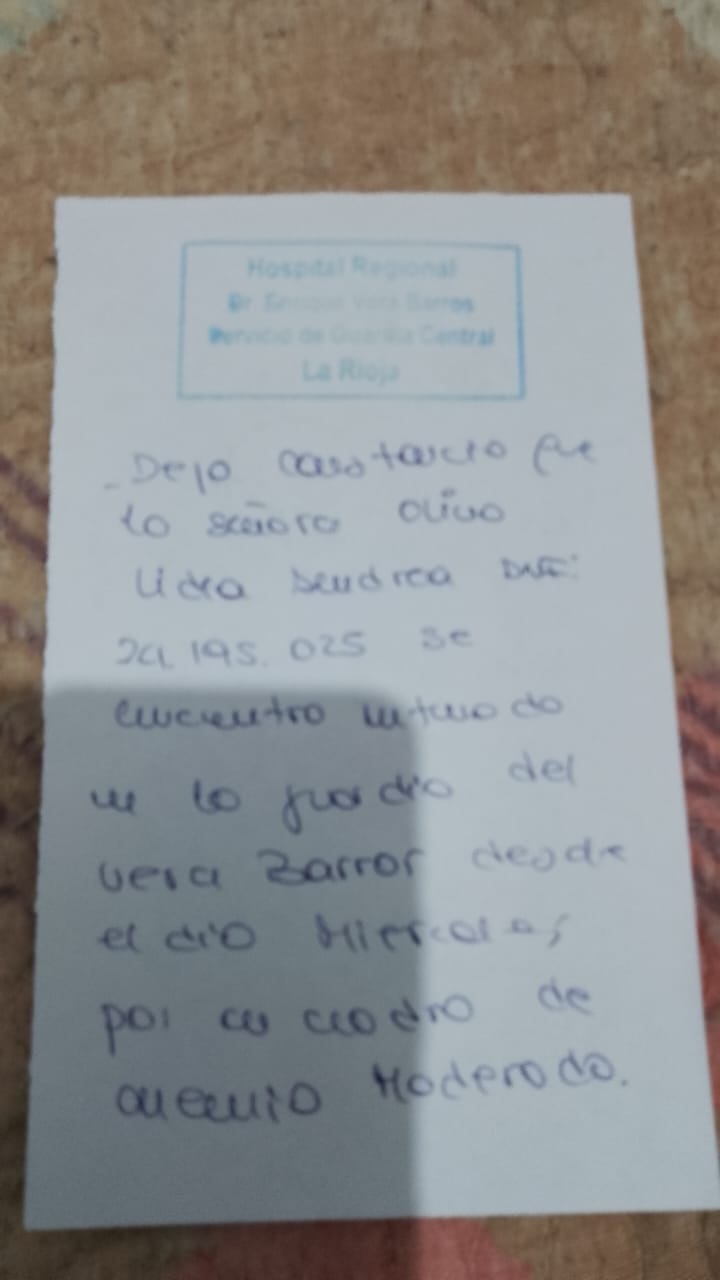 Hospital Regional
Dr. Enrique Vera Barros
Servicio de Guardia Central
La Rioja
_Dejo constancia que
la señora Oliva
Lidia Andrea DNI:
195.025 se
encuentra internada
en la guardia del
Vera Barros desde
el día Miercoles,
por un cuadro de
anemia Moderada.